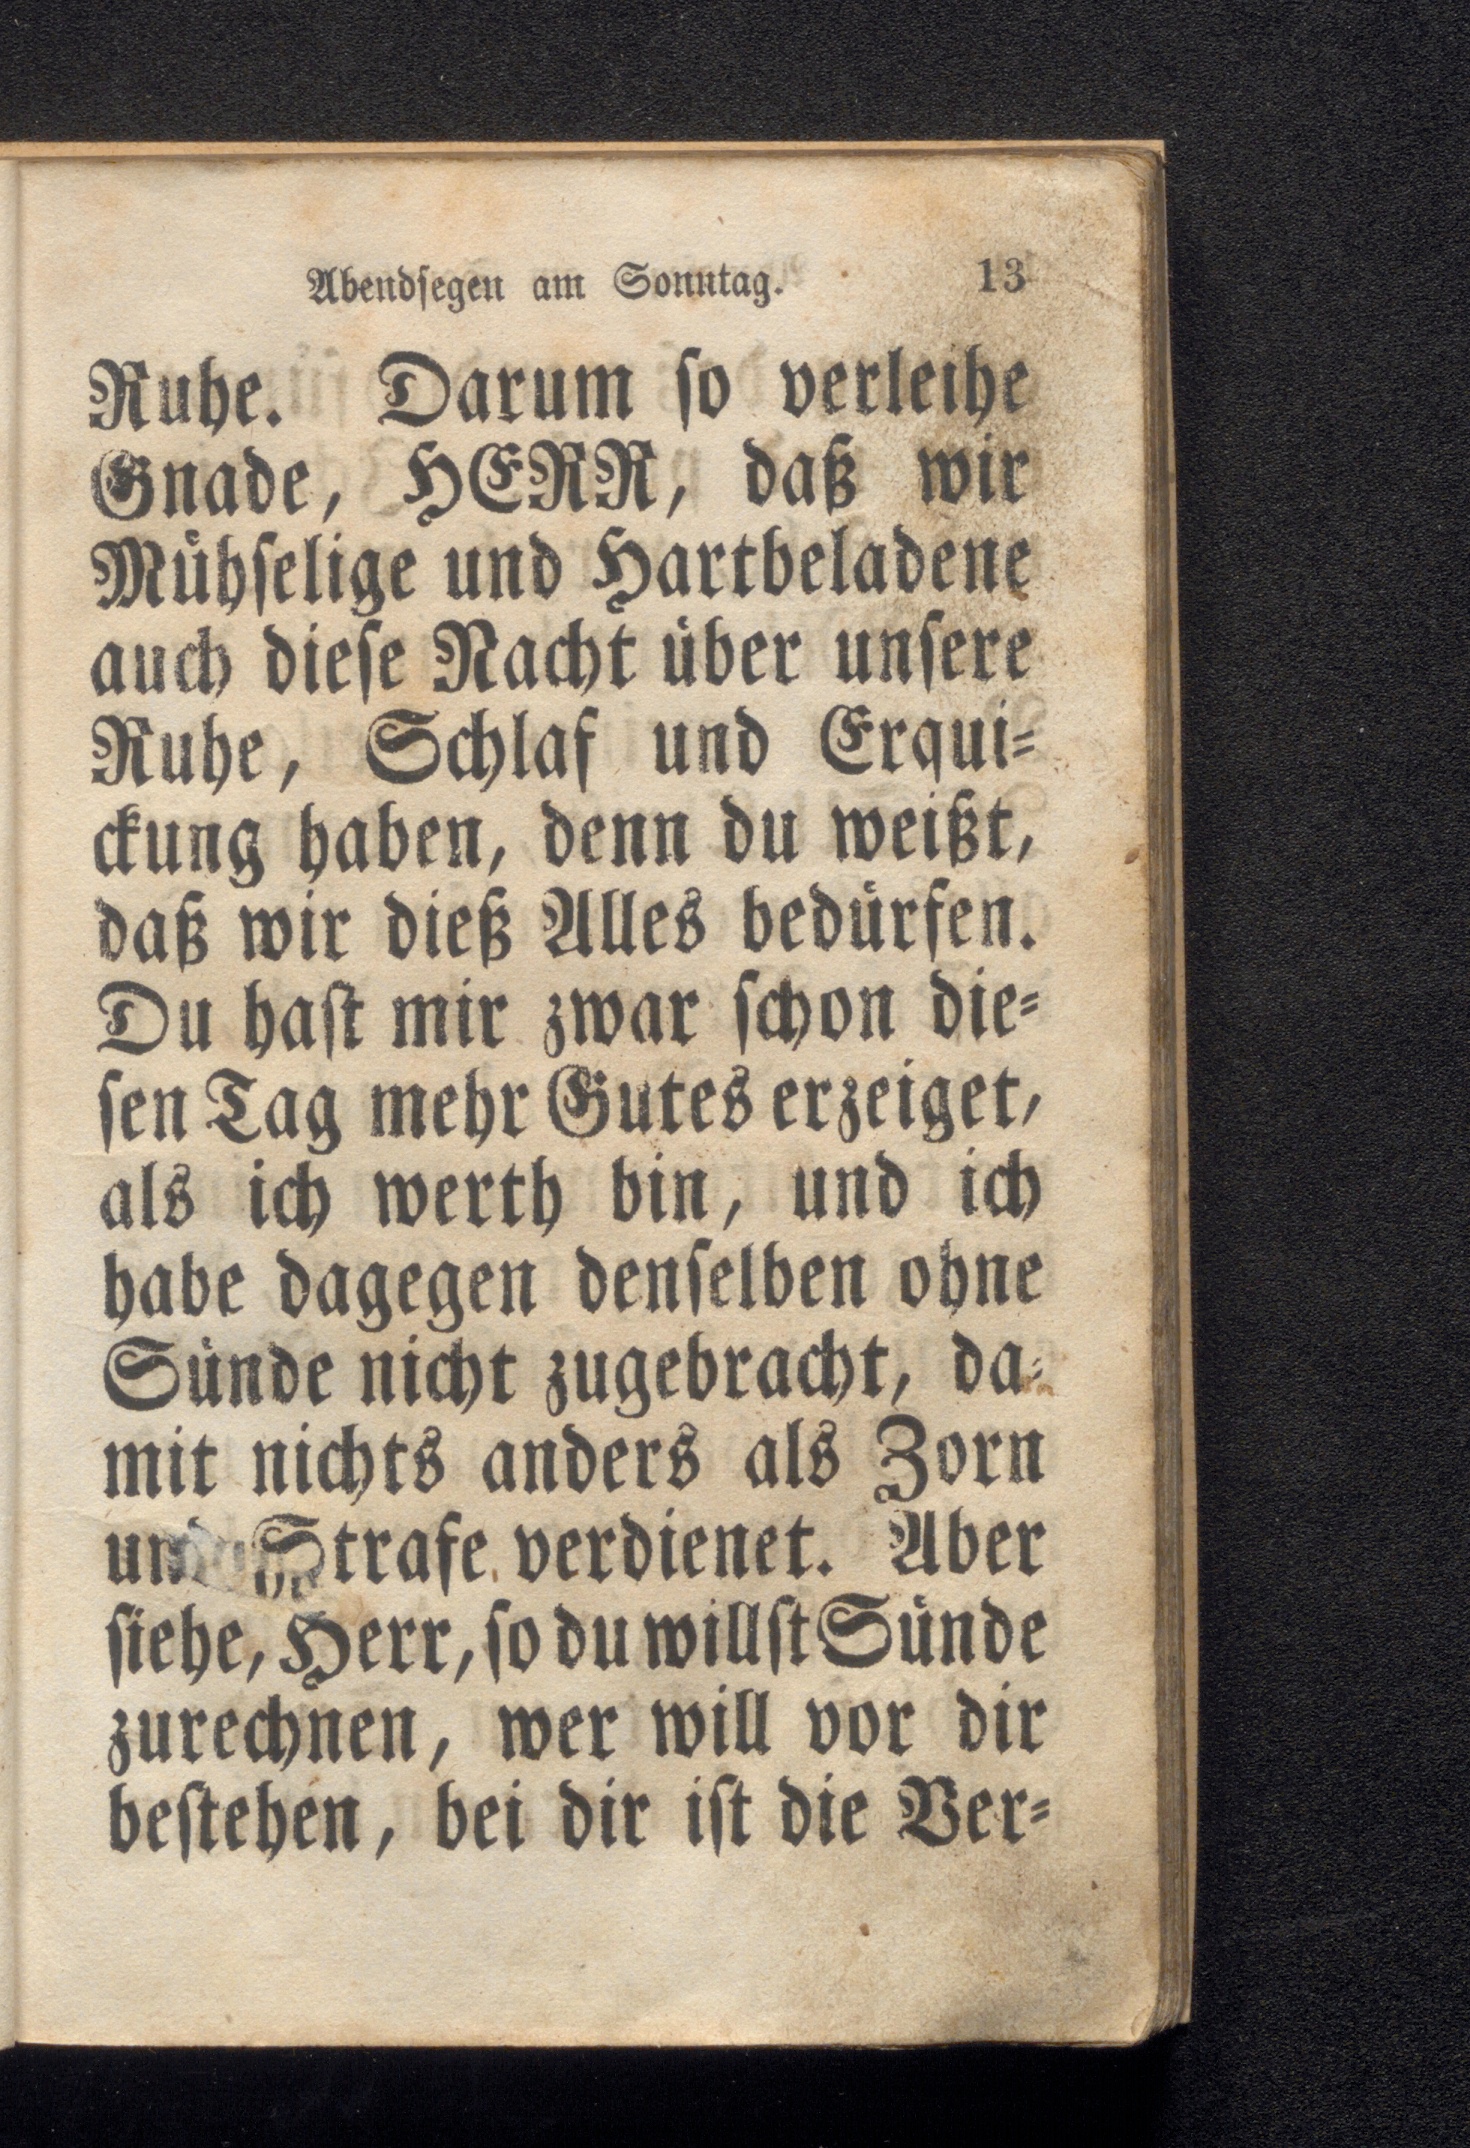 Abendſegen am Sonntag. 13
Ruhe. Darum ſo verleihe
Gnade, HERR, daß wir
Mühſelige und Hartbeladene
auch dieſe Nacht über unſere
Ruhe, Schlaf und Erqui⸗
ckung haben, denn du weißt,
daß wir dieß Alles bedürfen.
Du haſt mir zwar ſchon die⸗
ſen Tag mehr Gutes erzeiget,
als ich werth bin, und ich
habe dagegen denſelben ohne
Sünde nicht zugebracht, da⸗
mit nichts anders als Zorn
und Strafe verdienet. Aber
ſiehe, Herr, ſo du willſt Sünde
zurechnen, wer will vor dir
beſtehen, bei dir iſt die Ver⸗